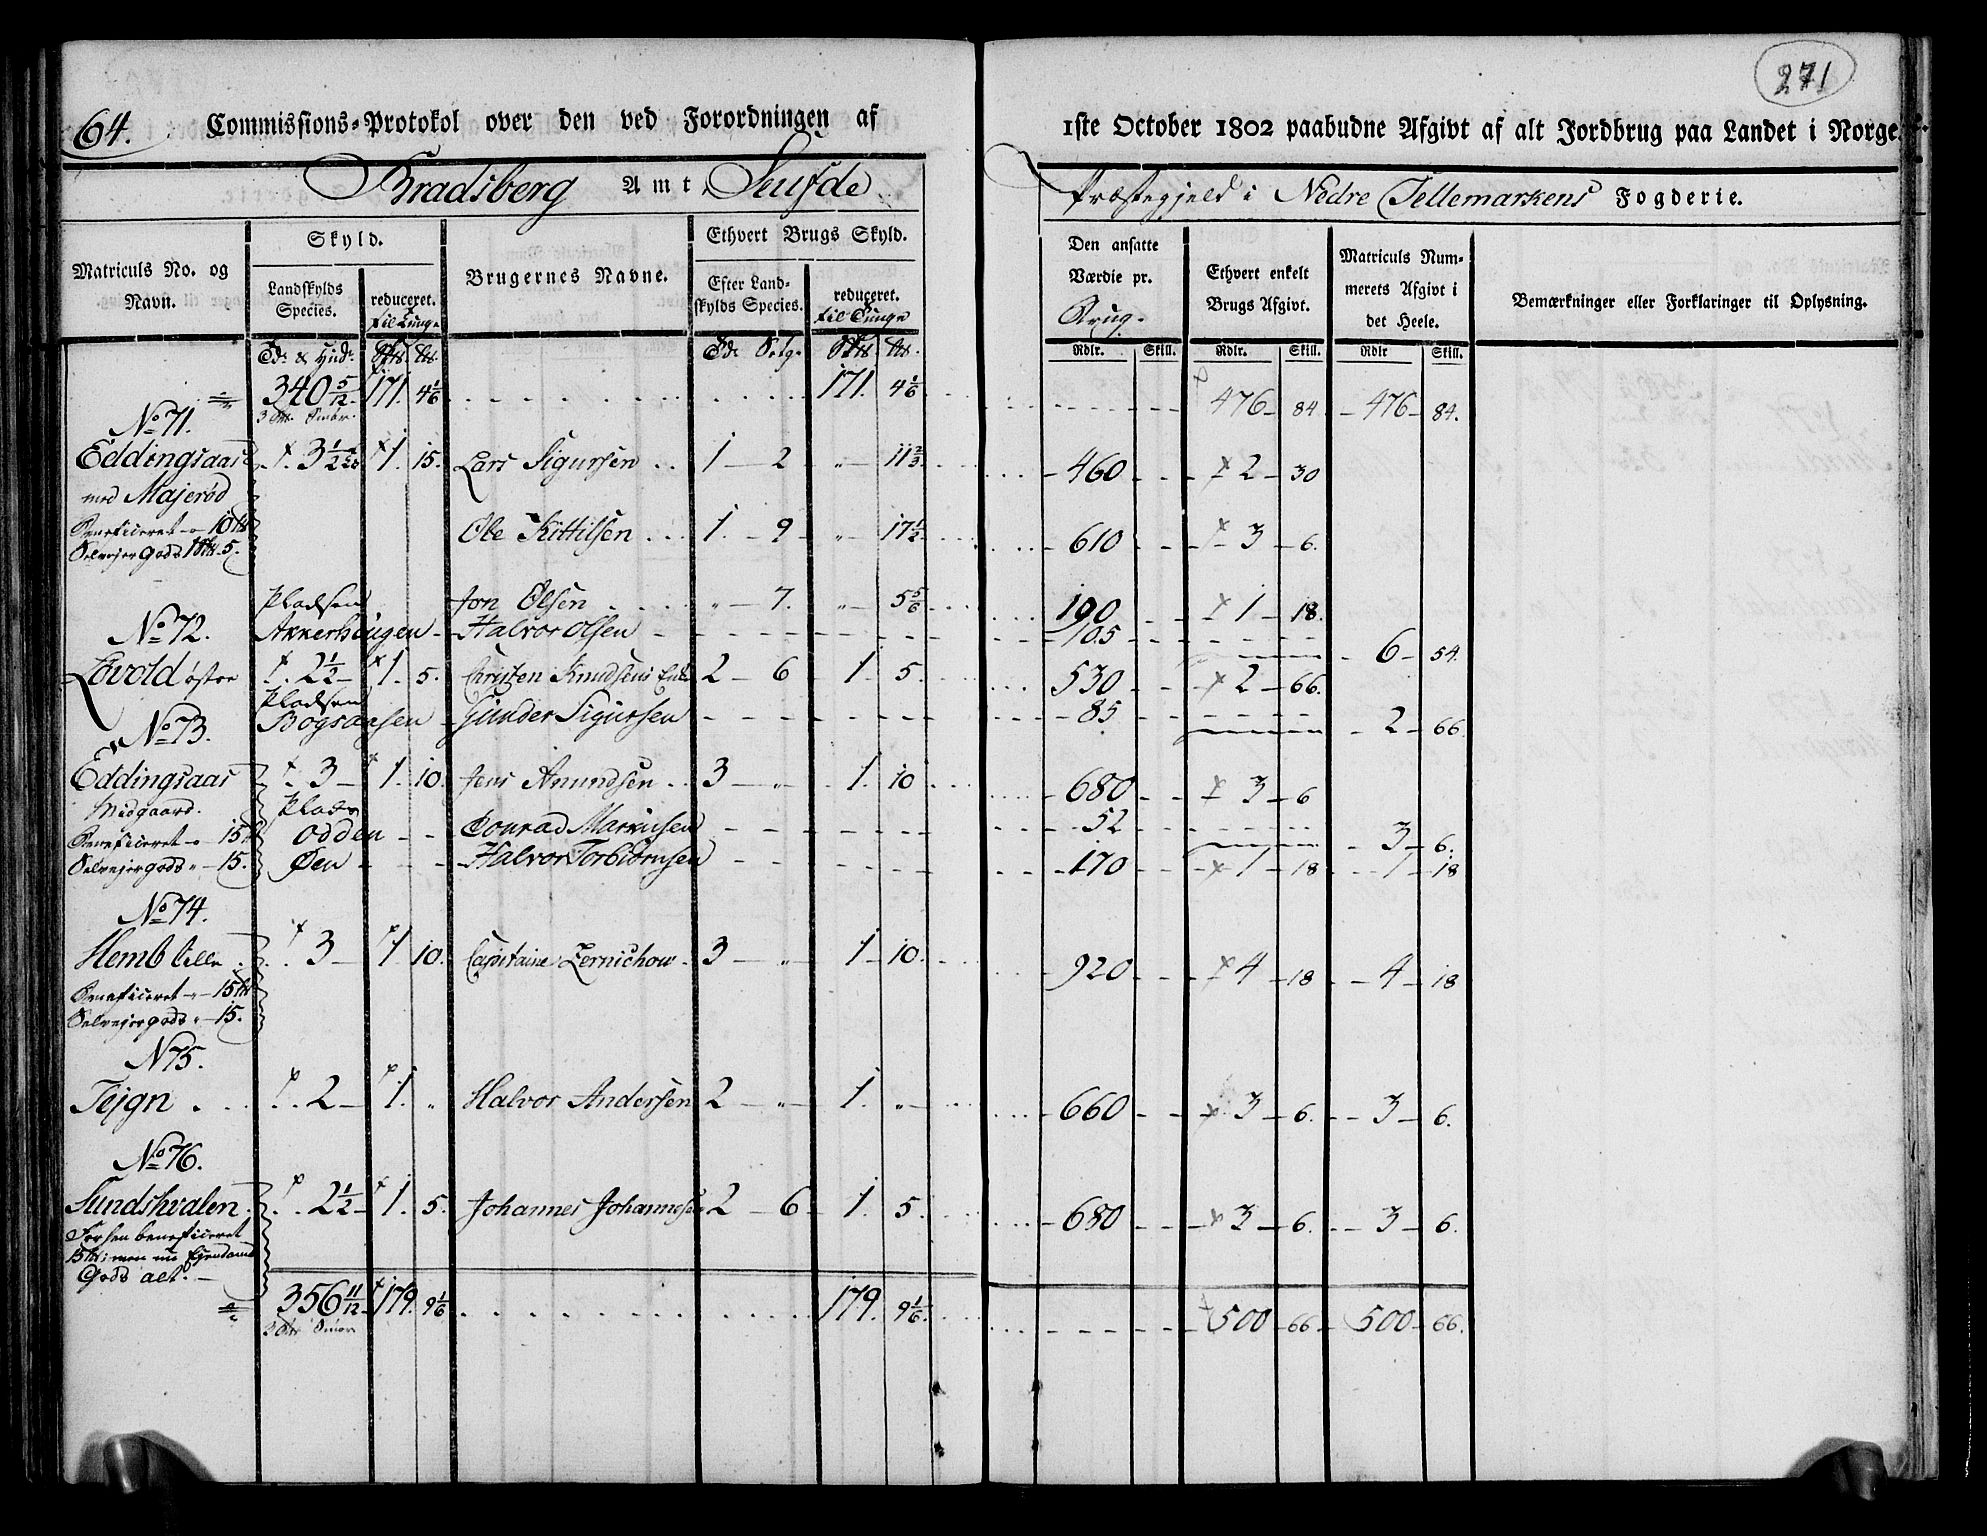 64. Commissions-Protokol over den ved Forordningen af
1ste October 1802 paabudne Afgivt af alt Jordbrug paa Landet i Norge.
271
Bradsberg Amt,
Præstegjeld i Nedre Tellemarkens Fogderie.
Matriculs No. og Navn.
Skyld.
Landskylds Species.
reduceret. til Tunge
Brugernes Navne.
Ethvert Brugs Skyld.
Efter Landskylds Species.
reduceret. til Tunge
Den ansatte Værdie pr. Brug.
Ethvert enkelt Brugs Afgivt.
Matriculs Nummerets Afgivt i det Heele.
Bemærkninger eller Forklaringer til Oplysning.
Rdlr. Skill. Rdlr. Skill. Rdlr Skill.
340 5/12 171. 4 1/6 171. 4 1/6 476 84 476 84.
No 71.
Eddingsaas 3 1/2 1. 15. Lars Sigursen 1 2 " 11 2/3 460 2 30
med Majerød
Beneficeret 10
Selvejergods 5. Ole Kittilsen 1. 9 " 17 1/2 610 3 6.
Pladsen Jon Olsen " 7. " 5 5/6 190 1 18.
No 72. Akkerhougen Halvor Olsen 105 6 54.
Lovold østre 2 1/2 1. 5. Christen Knudsens Enke 2 6 1. 5. 530 2 66.
Pladsen
No 73. Bogsaasen Gunder Sigursen 85 2 66
Eddingsaas 3 1. 10. Jens Amundsen 3 " 1. 10 680 3 6
Midgaard. Pladsen
Beneficeret 15 Odden Conrad Markusen 52 3 6.
Selvejergods " 15. Øen Halvor Torbiørnsen 170 1 18 1 18
No 74.
Hemb lille 3 1 10. Capitaine Zernichow 3 " 1 10. 920 4 18 4 18
Beneficeret 15
Selvejergods " 15.
No 75.
Tejgn 2 1. " Halvor Andersen 2 " 1. " 660 3 6. 3 6.
No 76.
Sundshvalen 2 1/2 1. 5. Johannes Johannesen 2 6 1. 5. 680 3 6. 3 6.
Forhen beneficeret
men nu Ejendoms
Gods alt.
356 11/12 179. 9 1/6 179. 9 1/6 500 66 500 66.
3 Smør